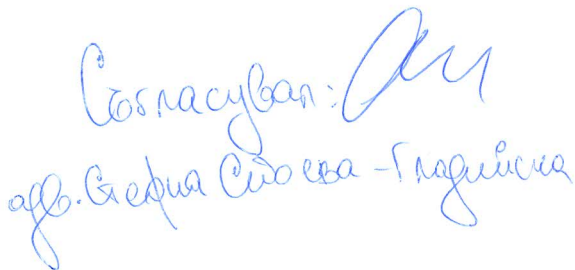 Съгласувал:
адв. Стефка Стоева - Гладийска